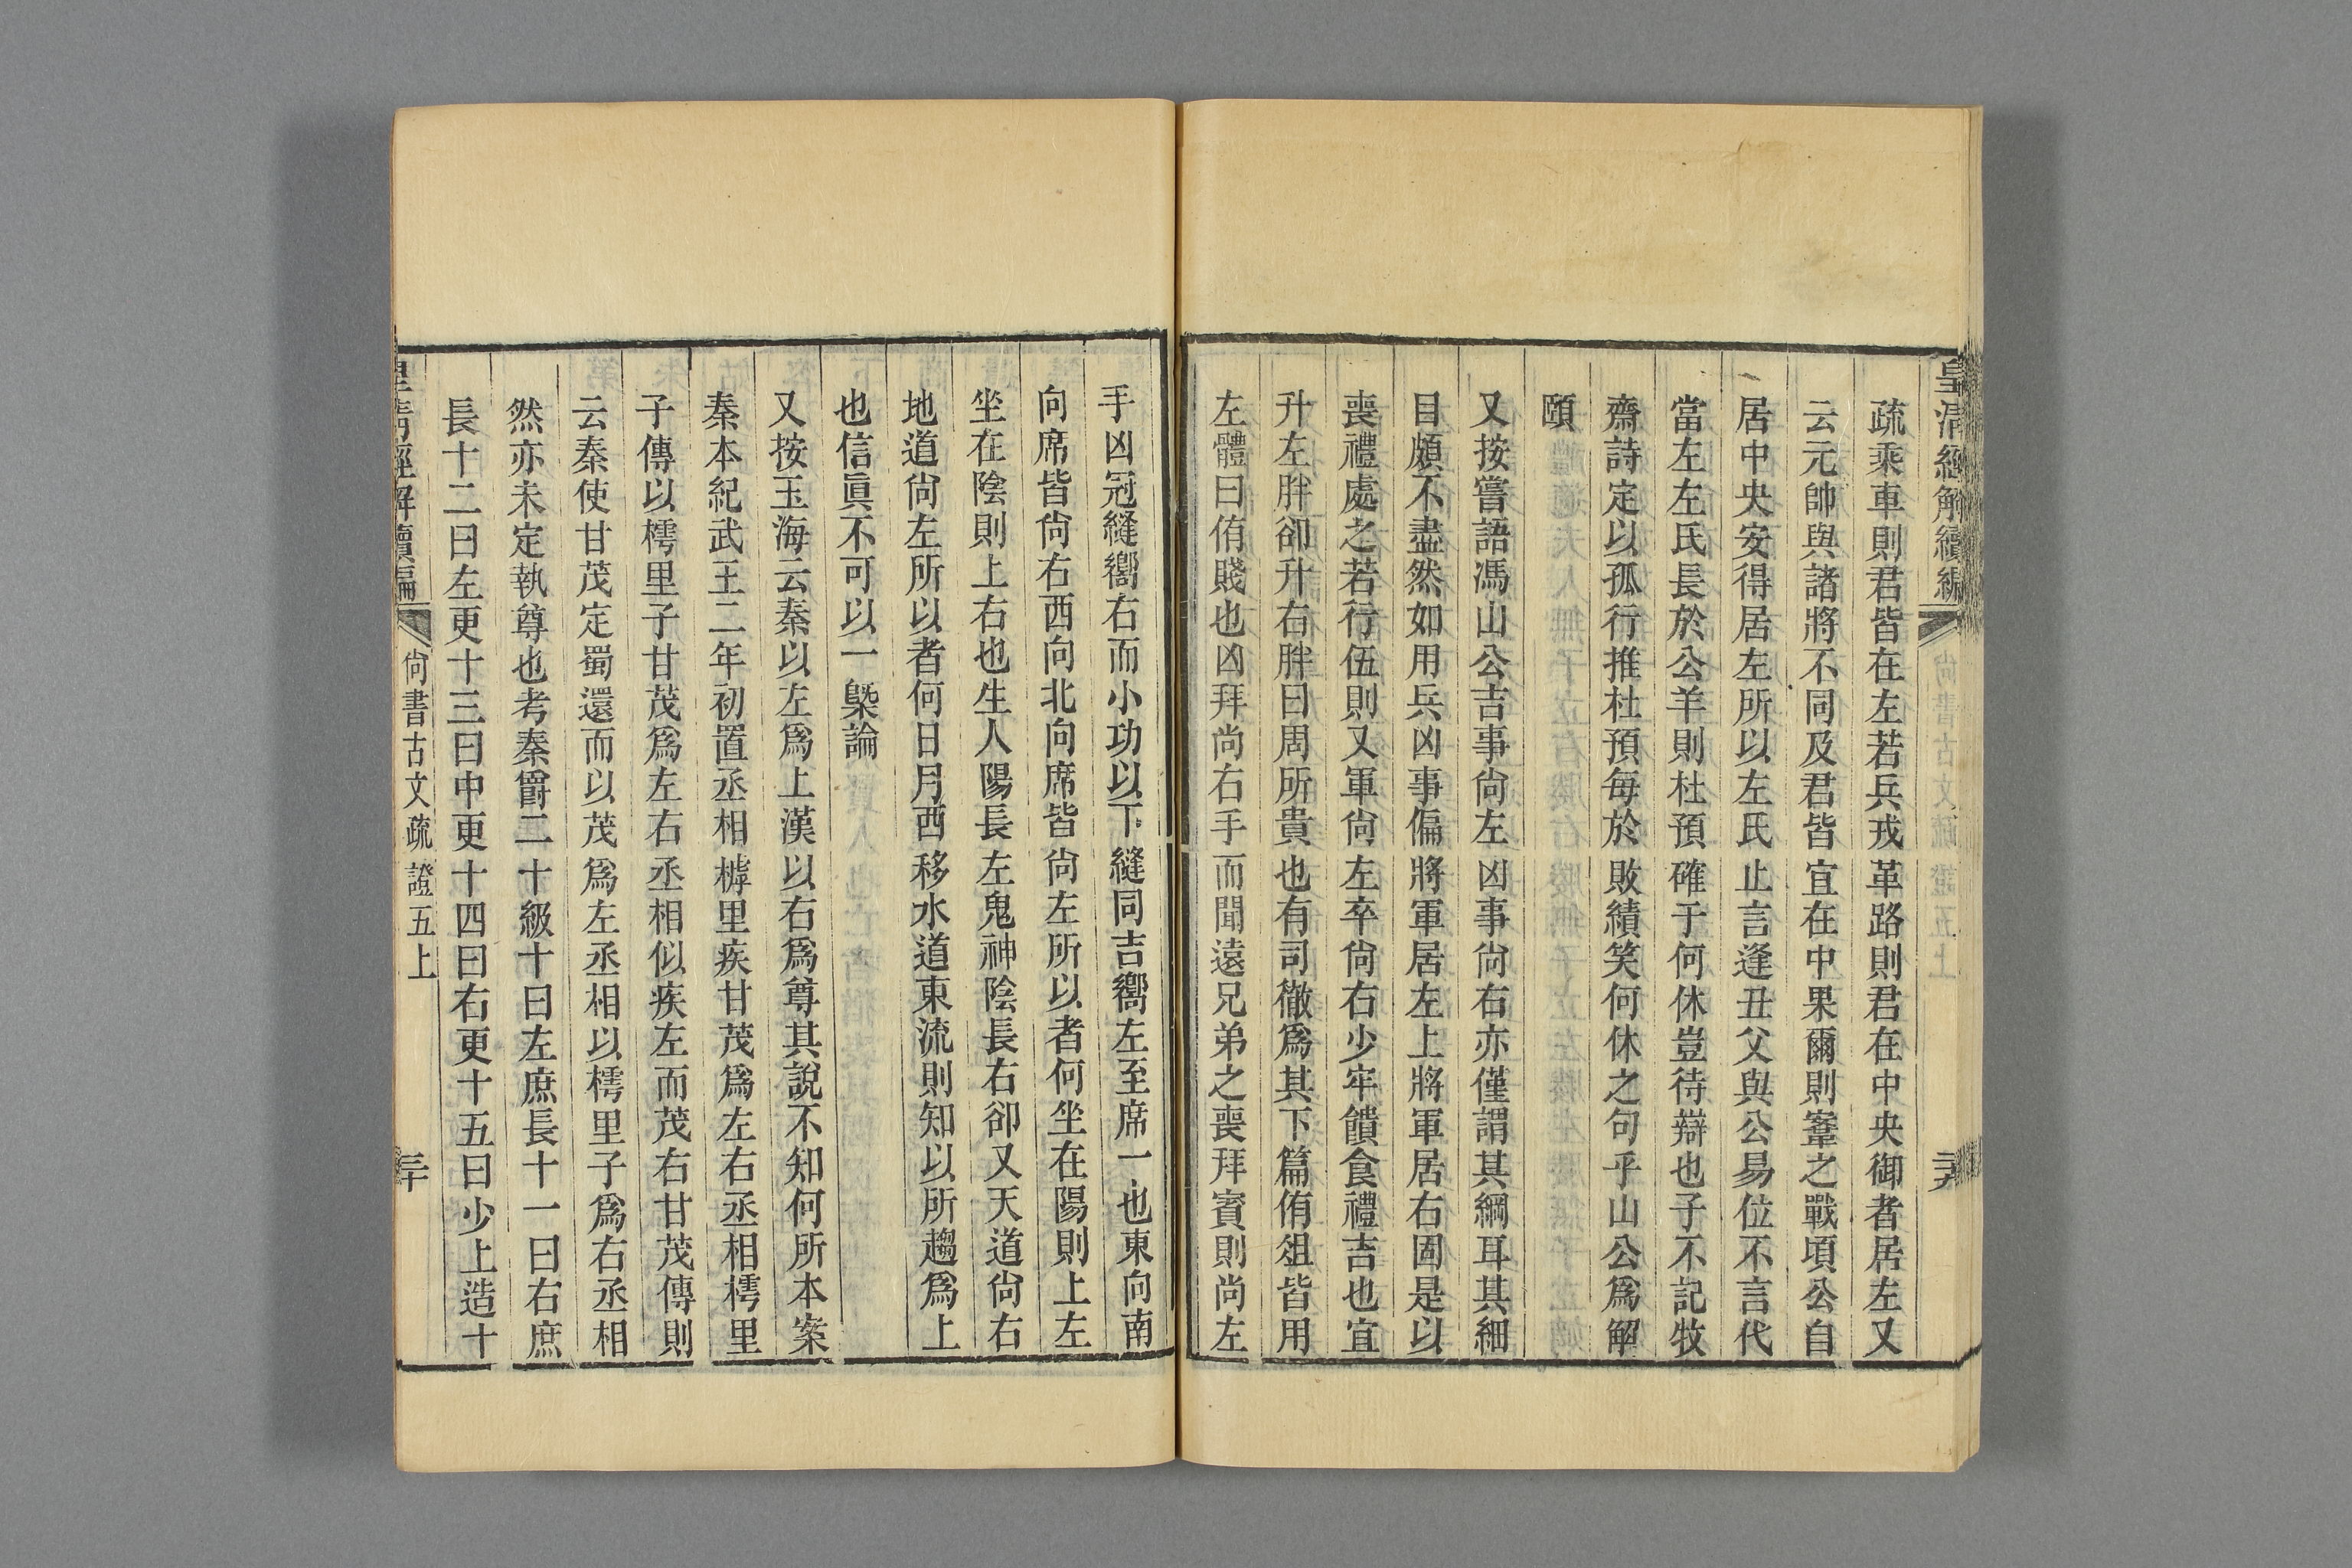 皇清經解續編 尚書古文疏證五上
疏乘車則君皆在左若兵戎革路則君在中央御者居左又
云元帥與諸將不同及君皆宜在中果爾則鞌之戰頃公自
居中央安得居左所以左氏止言逢丑父與公易位不言代
當左左氏長於公羊則杜預確于何休豈待辯也子不記牧
齋詩定以孤行推杜預每於敗績笑何休之句乎山公爲解
頤
又按嘗語馮山公吉事尙左凶事尙右亦僅謂其綱耳其細
目頗不盡然如用兵凶事偏將軍居左上將軍居右固是以
喪禮處之若行伍則又軍尙左卒尙右少牢饋食禮吉也宜
升左胖卻升右胖曰周所貴也有司徹爲其下篇侑俎皆用
左體曰侑賤也凶拜尚右手而聞遠兄弟之喪拜賓則尚左
手凶冠縫嚮右而小功以下縫同吉嚮左至席一也東向南
向席皆尙右西向北向席皆尙左所以者何坐在陽則上左
坐在陰則上右也生人陽長左鬼神陰長右卻又天道尙右
地道尙左所以者何日月西移水道東流則知以所趨爲上
也信眞不可以一槩論
又按玉海云秦以左爲上漢以右爲尊其說不知何所本案
秦本紀武王二年初置丞相樗里疾甘茂爲左右丞相樗里
子傳以樗里子甘茂爲左右丞相似疾左而茂右甘茂傳則
云秦使甘茂定蜀還而以茂爲左丞相以樗里子爲右丞相
然亦未定執尊也考秦爵二十級十曰左庶長十一曰右庶
長十二曰左更十三曰中更十四曰右更十五曰少上造十
皇清經解續編 尙書古文疏證五上 三十